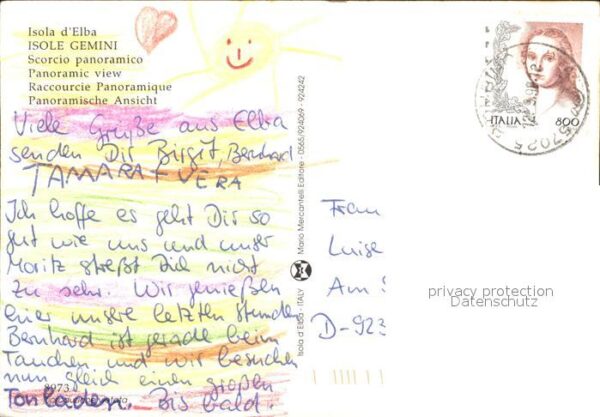 Isola d'Elba
ISOLE GEMINI
Scorcio panoramico
Panoramic view
Raccourcie Panoramique
Panoramische Ansicht
Viele Grüße aus Elba
senden Dir Birgit, Bernhard
TAMARA + VERA
Ich hoffe es geht Dir so
gut wie uns und unser
Moritz streßt Dich nicht
zu sehr. Wir genießen
hier unsere letzten Stunden
Bernhard ist gerade beim
Tauchen und wir besuchen
nun gleich einen großen
Tonladen. Bis bald.
8973
Isola d'Elba - ITALY
Mario Mercantelli Editore - 0565/924069 - 924242
ITALIA
800
57025
Frau
Luise
Am
D-923
privacy protection
Datenschutz